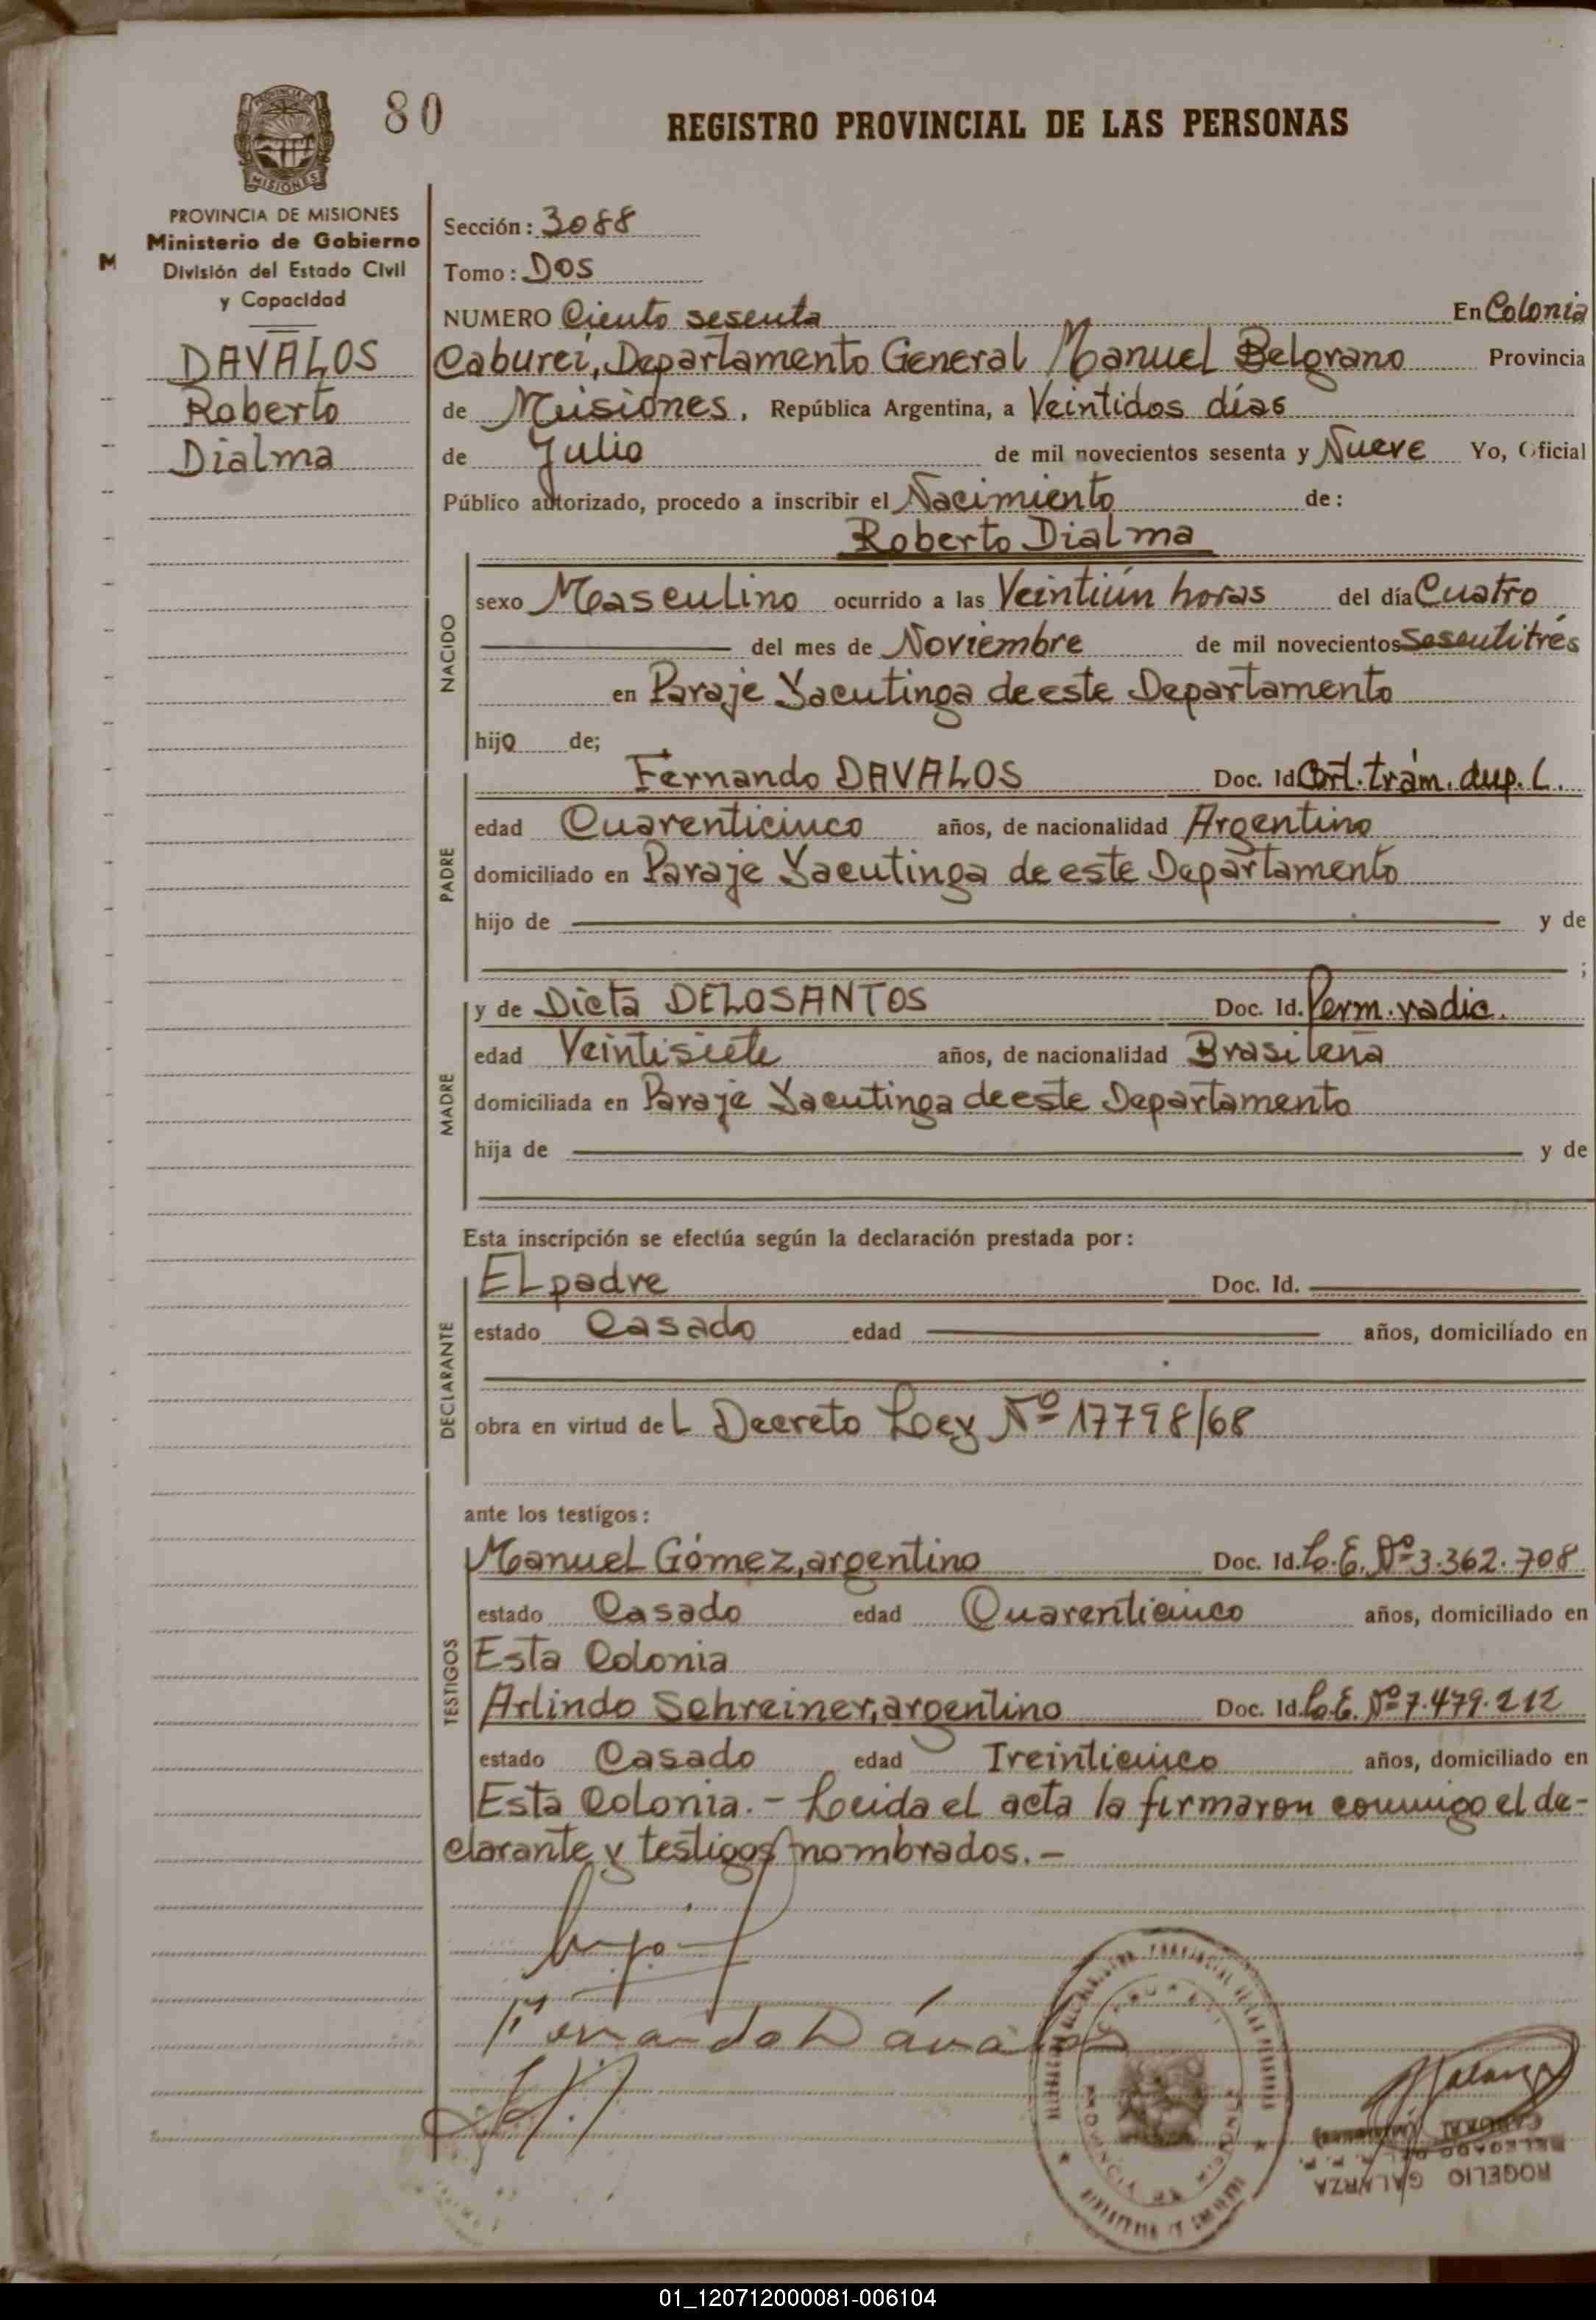 80
REGISTRO PROVINCIAL DE LAS PERSONAS
PROVINCIA DE MISIONES
Ministerio de Gobierno
División del Estado Civil
y Capacidad
M
DAVALOS
Roberto
Dialma
Sección: 3088
Tomo: DOS
NUMERO Ciento sesenta En Colonia
Caburei, Departamento General Manuel Belgrano Provincia
de Misiones, República Argentina, a Veintidos días
de Julio de mil novecientos sesenta y Nueve Yo, Oficial
Público autorizado, procedo a inscribir el Nacimiento de:
Roberto Dialma
NACIDO
sexo Masculino ocurrido a las Veintiún horas del día Cuatro
del mes de Noviembre de mil novecientos Sesentitrés
en Paraje Yacutinga de este Departamento
hijo de;
PADRE
Fernando DAVALOS Doc. Id Cert. trám. dup. C.
edad Cuarenticinco años, de nacionalidad Argentino
domiciliado en Paraje Yacutinga de este Departamento
hijo de y de
;
MADRE
y de Dieta DELOSANTOS Doc. Id. Perm. radic.
edad Veintisiete años, de nacionalidad Brasileña
domiciliada en Paraje Yacutinga de este Departamento
hija de y de
Esta inscripción se efectúa según la declaración prestada por:
DECLARANTE
El padre Doc. Id.
estado Casado edad años, domiciliado en
obra en virtud del Decreto Ley Nº 17798/68
ante los testigos:
TESTIGOS
Manuel Gómez, argentino Doc. Id. L.E. Nº 3.362.708
estado Casado edad Cuarenticinco años, domiciliado en
Esta Colonia
Arlindo Schreiner, argentino Doc. Id. L.E. Nº 7.479.212
estado Casado edad Treinticinco años, domiciliado en
Esta Colonia.- Leída el acta la firmaron conmigo el de-
clarante y testigos nombrados.-
Fernando Dávalos
Galarza
ROGELIO GALARZA
01_120712000081-006104